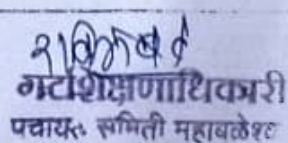 गटशिक्षणाधिकारी
पंचायत समिती महाबळेश्वर